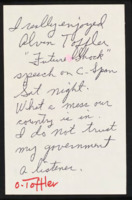 I really enjoyed
Alvin Toffler
"Future Shock"
speech on C. Span
Sat night.
What a mess our
country is in.
I do not trust
my government
A listener.
O-Toffler